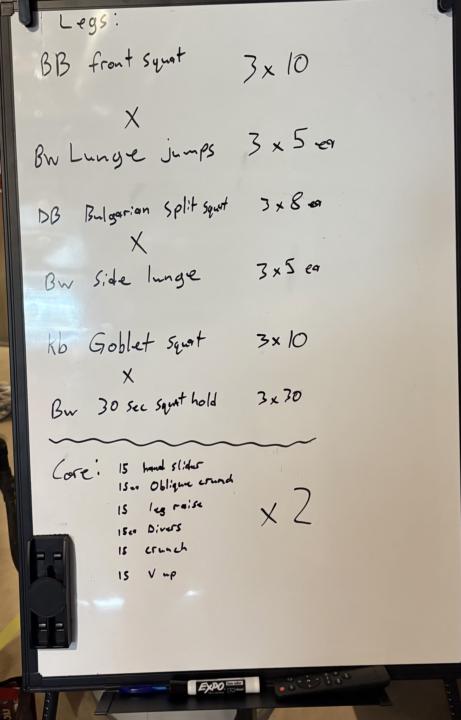 Legs:
BB front squat 3 x 10
X
BW Lunge jumps 3 x 5 ea
DB Bulgarian split squat 3 x 8 ea
X
BW side lunge 3 x 5 ea
kb Goblet squat 3 x 10
X
BW 30 sec squat hold 3 x 30
Core: 15 hand slider
15ea Oblique crunch
15 leg raise
x 2
15ea Divers
15 crunch
15 V up
EXPO